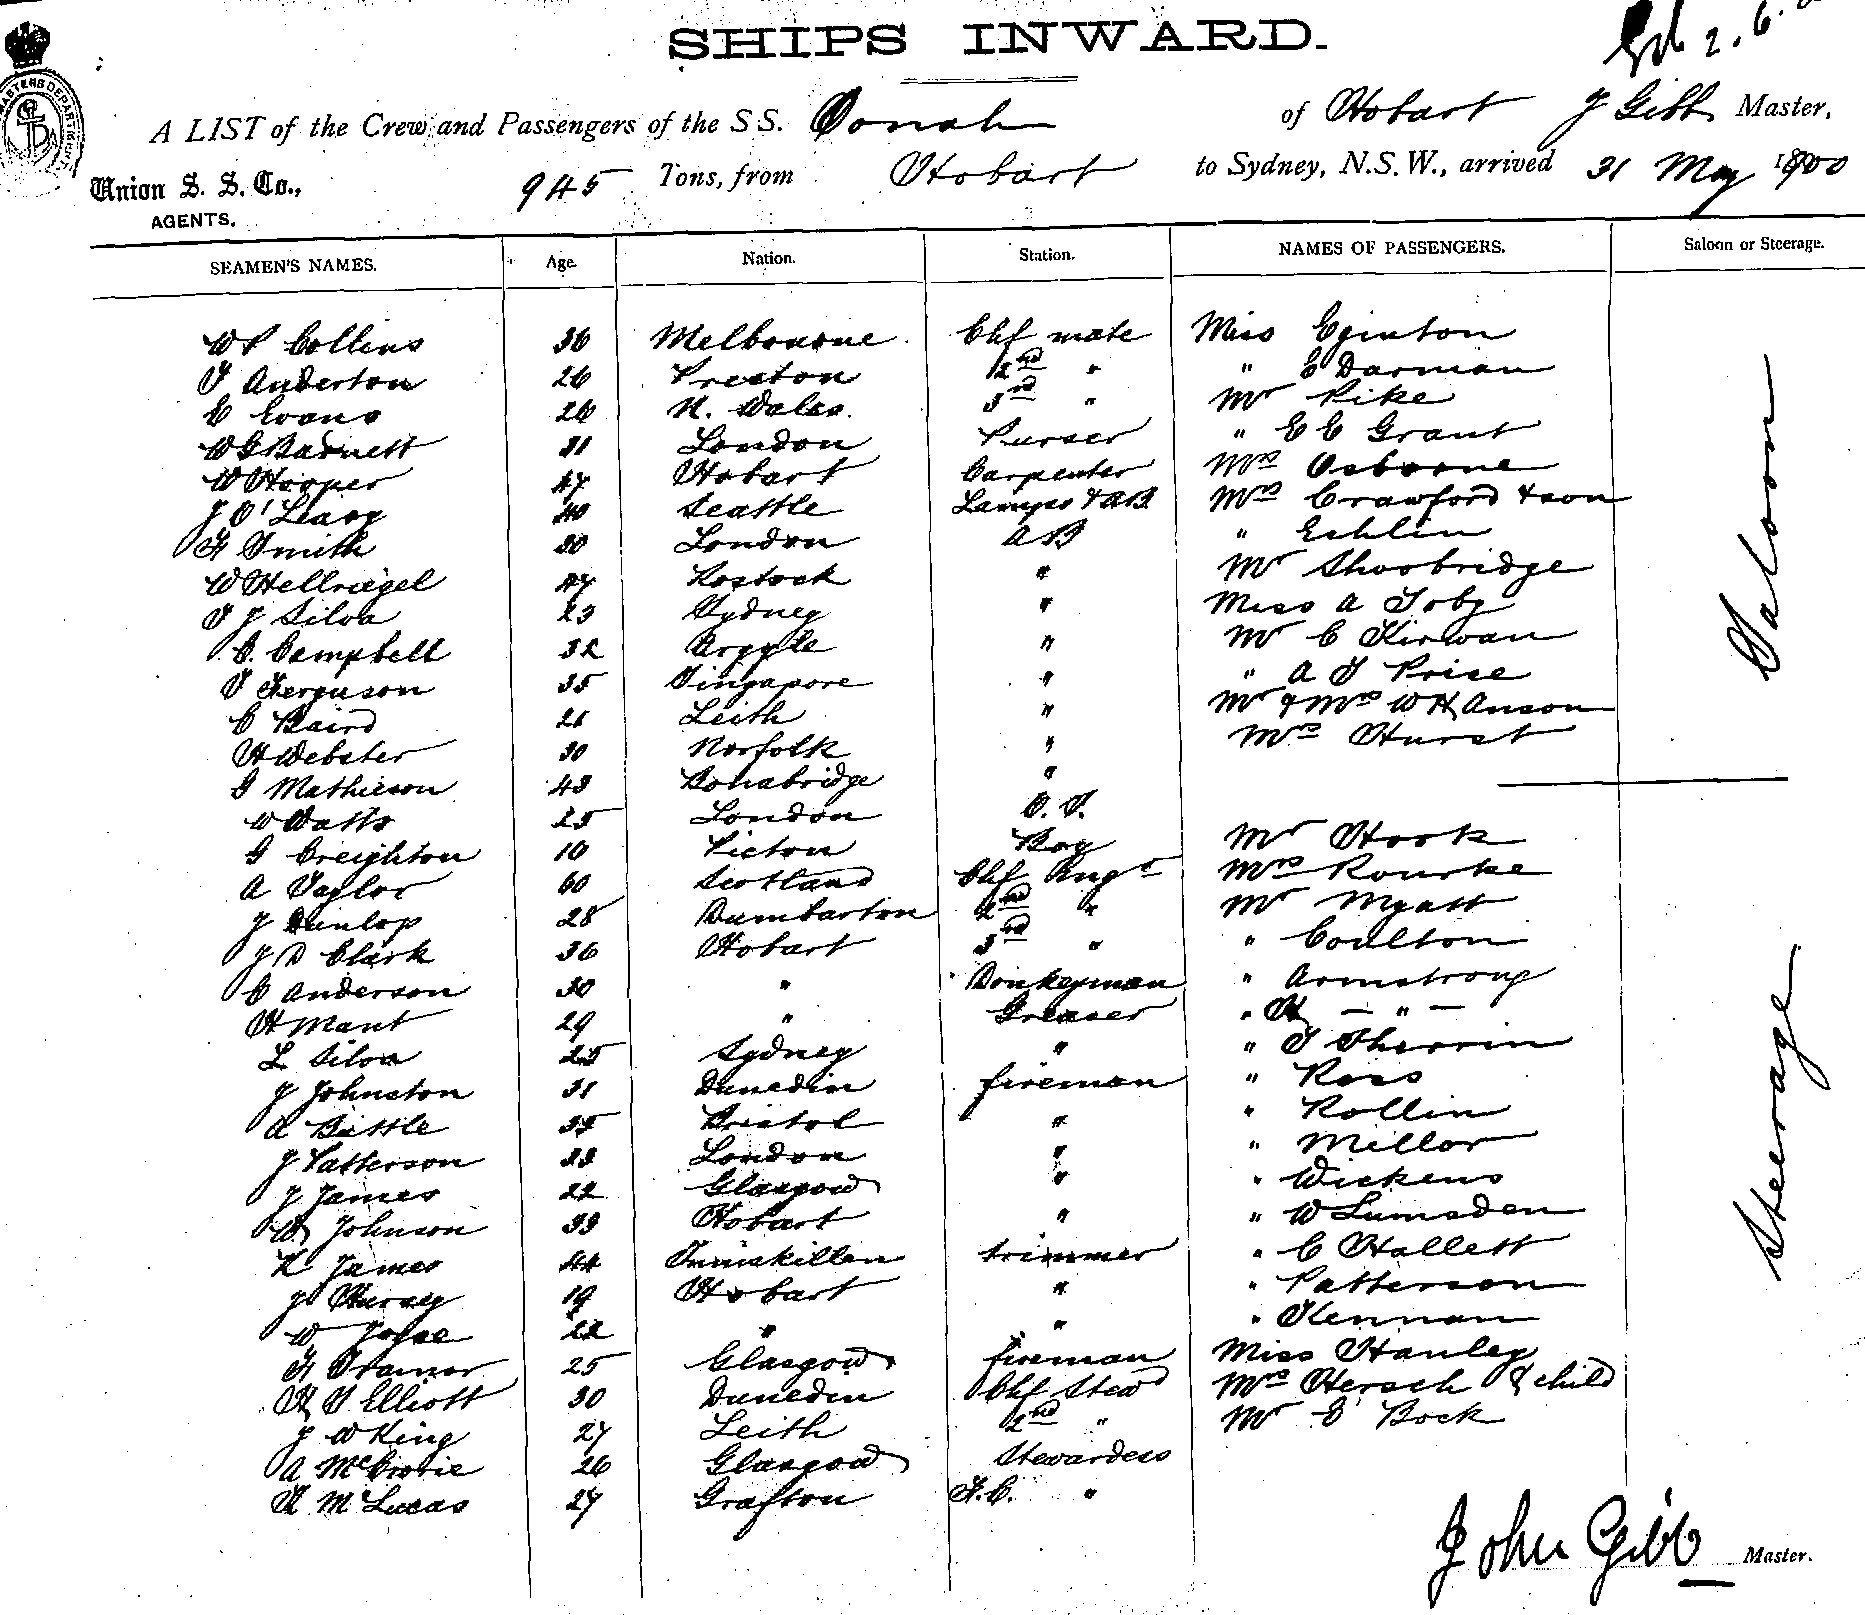 SHIPS INWARD.
A LIST of the Crew and Passengers of the SS. Oonah of Hobart J Gibb Master,
Union S. S. Co., 945 Tons, from Hobart to Sydney, N.S.W., arrived 31 May 1900
AGENTS.
SEAMEN'S NAMES. Age. Nation. Station. NAMES OF PASSENGERS. Saloon or Steerage.
W P Collins 36 Melbourne Chf mate Miss Eginton
T Anderton 26 Preston 2nd " " E Darman
E Evans 26 N. Wales. 3rd " Mr Pike
W G Barnett 31 London Purser " E E Grant
W Hooper 47 Hobart Carpenter Mrs Osborne
J O'Leary 40 Seattle Lamps & AB Mrs Crawford & son
H Smith 30 London AB " Echlin
W Hellriegel 47 Rostock " Mr Shoobridge
T J Silva 23 Sydney " Miss A Toby
C. Campbell 32 Argyle " Mr C Kirwan
T Ferguson 35 Singapore " " A T Price
C Baird 21 Leith " Mr & Mrs W H Anson
H Webster 30 Norfolk " Mrs Hurst
G Mathieson 43 Bonabridge "
Saloon
W Watts 25 London O.S.
G Creighton 10 Picton Boy Mr Hook
A Taylor 60 Scotland Chf Engr Mrs Rourke
J Dunlop 28 Dumbarton 2nd " Mr Myatt
J D Clark 36 Hobart 3rd " " Coulton
C Anderson 30 " Donkeyman " Armstrong
H Mant 29 " Greaser " H — " —
L Silva 25 Sydney " " T Sherrin
J Johnston 31 Dunedin fireman " Ross
A Battle 35 Bristol " " Rollin
J Patterson 33 London " " Millar
J James 22 Glasgow " " Wickens
W Johnson 33 Hobart " " W Lumsden
K James 44 Inniskillen trimmer " C Hallett
J Harvey 19 Hobart " " Patterson
W Joyce 22 " " " Kennan
H Tramor 25 Glasgow fireman Miss Hanley
H T Elliott 30 Dunedin Chf Stewd Mrs Hersch & child
J W King 27 Leith 2nd " Mr E Bock
A McCrorie 26 Glasgow Stewardess
H McLucas 27 Grafton F.C. "
Steerage
John Gibb Master.